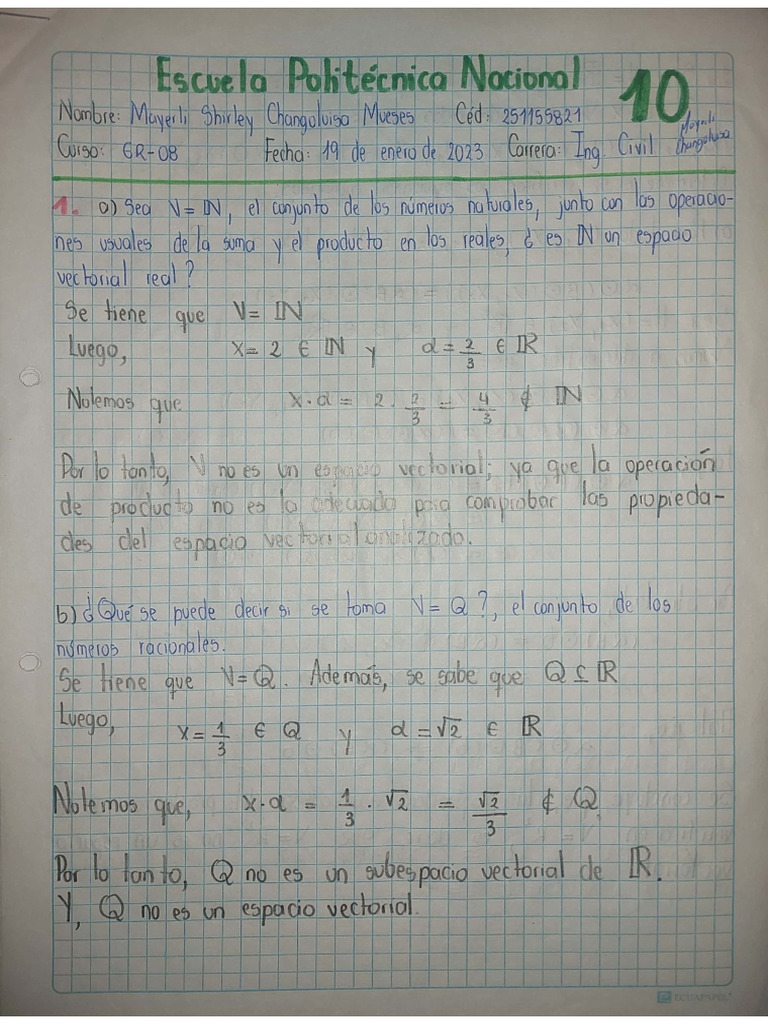 Escuela Politécnica Nacional
10
Nombre: Mayerli Shirley Changoluisa Mueses Céd: 251155821
Mayerli
Changoluisa
Curso: GR-08 Fecha: 19 de enero de 2023 Carrera: Ing. Civil
1. a) Sea V = ℕ, el conjunto de los números naturales, junto con las operacio-
nes usuales de la suma y el producto en los reales, ¿ es ℕ un espacio
vectorial real?
Se tiene que V = ℕ
Luego, x = 2 ∈ ℕ y α = 2/3 ∈ ℝ
Notemos que x · α = 2 · 2/3 = 4/3 ∉ ℕ
Por lo tanto, V no es un espacio vectorial; ya que la operación
de producto no es la adecuada para comprobar las propieda-
des del espacio vectorial analizado.
b) ¿Qué se puede decir si se toma V = Q?, el conjunto de los
números racionales.
Se tiene que V = Q. Además, se sabe que Q ⊆ ℝ
Luego, x = 1/3 ∈ Q y α = √2 ∈ ℝ
Notemos que, x · α = 1/3 · √2 = √2/3 ∉ Q
Por lo tanto, Q no es un subespacio vectorial de ℝ.
Y, Q no es un espacio vectorial.
ECUAPAPEL